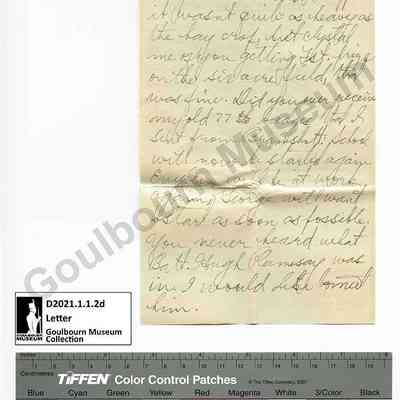 it wasn't quite as heavy as
the hay crop, but Crystal
me on you getting 1st. prize
on the six acre field, this
was fine. Did you ever receive
my old 77th badge that I
sent from Bramshott. School
will now be started again
will be at work
Young George will want
to start as soon as possible.
You never heard what
Bn. H. Hugh Ramsay was
in. I would like to meet
him.
Goulbourn Museum
D2021.1.1.2d
Letter
Goulbourn Museum
Collection
GOULBOURN
MUSEUM
Inches
Centimetres
TIFFEN Color Control Patches
© The Tiffen Company, 2007
Blue Cyan Green Yellow Red Magenta White 3/Color Black